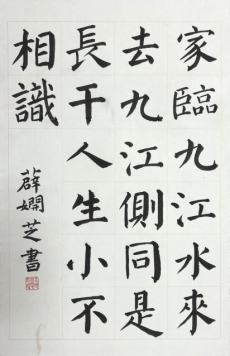 家臨九江水來
去九江側同是
長干人生小不
相識
薛嫻芝書